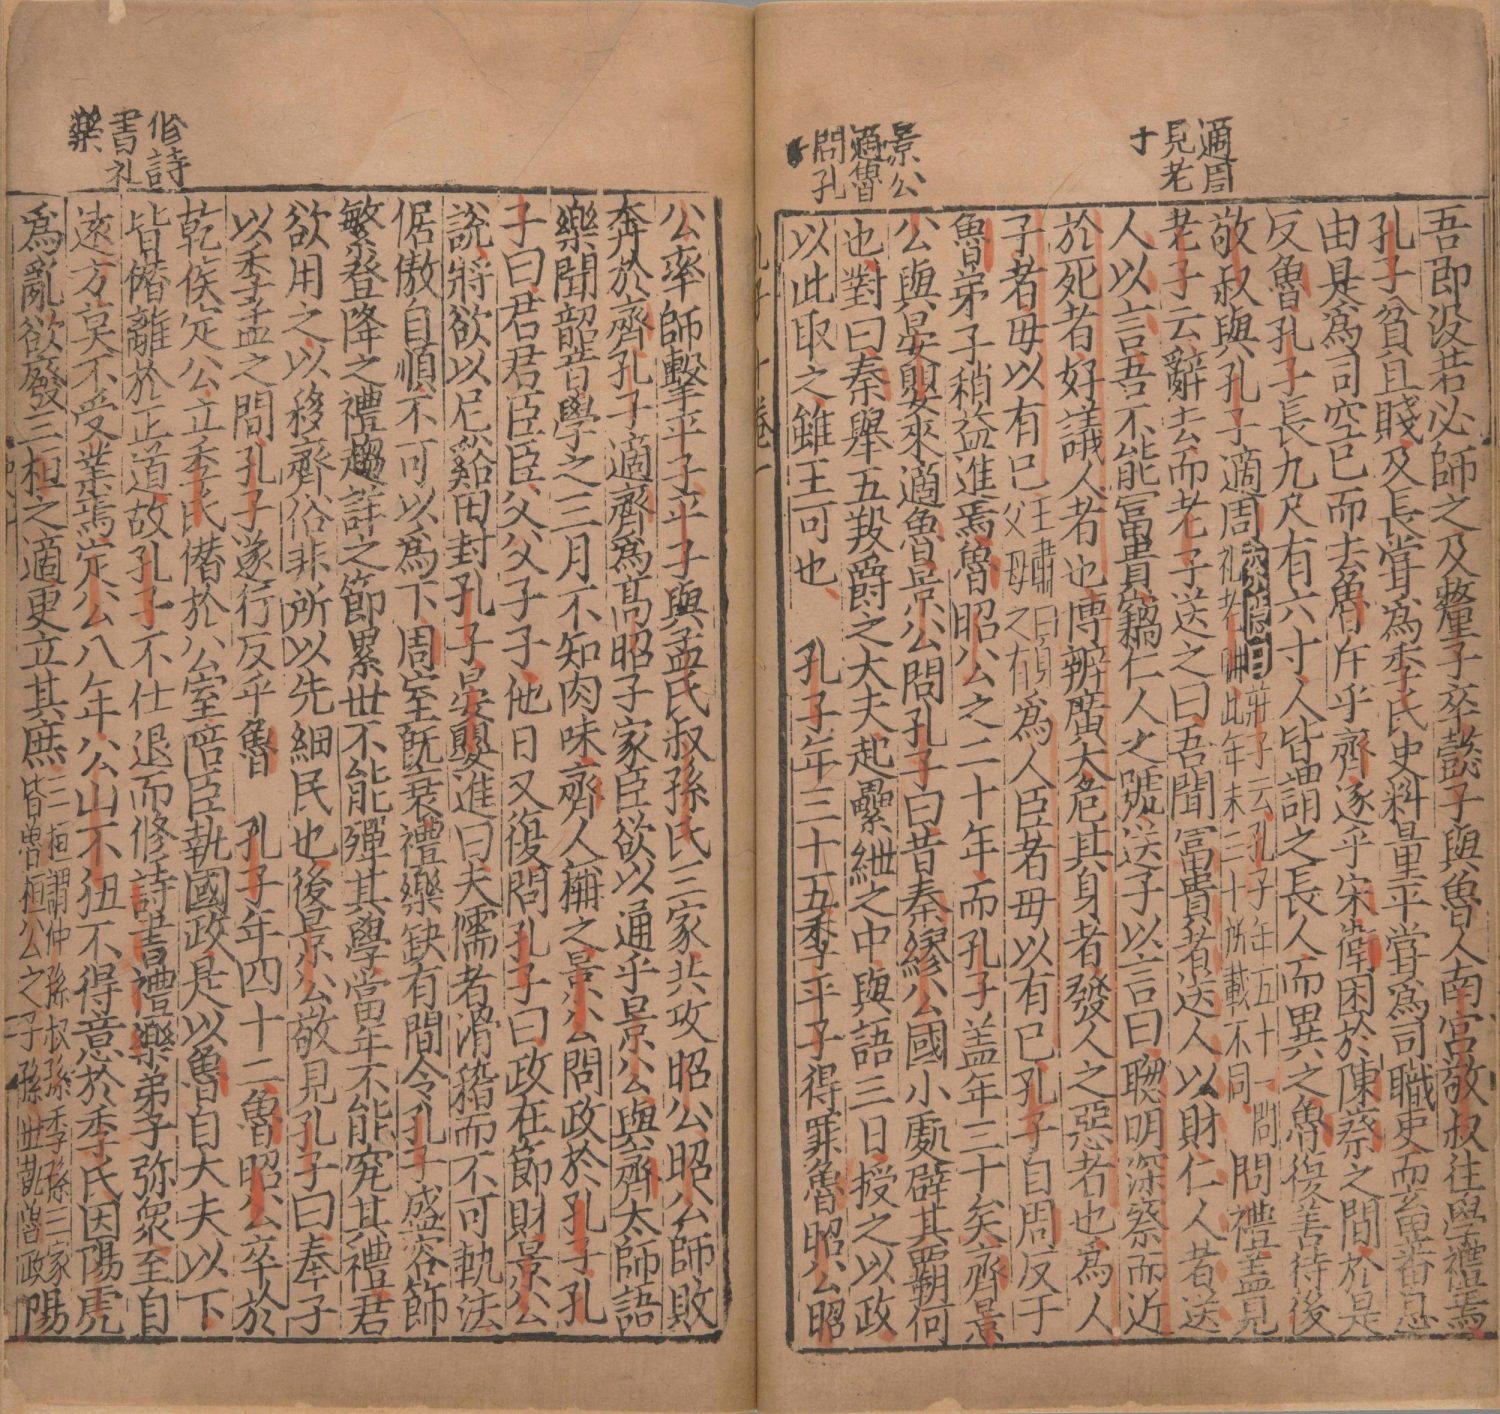 適周
見老
子
景公
適魯
問孔
子
吾即没若必師之及釐子卒懿子與魯人南宮敬叔往學禮焉
孔子貧且賤及長甞爲季氏史料量平甞爲司職吏而畜蕃息
由是爲司空已而去魯斥乎齊逐乎宋衛困於陳蔡之間於是
反魯孔子長九尺有六寸人皆謂之長人而異之魯復善待後
敬叔與孔子適周莊子云孔子年五十一問老聃此年未三十所載不同問禮盖見
老子云辭去而老子送之曰吾聞冨貴者送人以財仁人者送
人以言吾不能冨貴竊仁人之號送子以言曰聦明深察而近
於死者好議人者也博辨廣大危其身者發人之惡者也爲人
子者毋以有已王肅曰身父母之有爲人臣者毋以有已孔子自周反于
魯弟子稍益進焉魯昭公之二十年而孔子盖年三十矣齊景
公與晏嬰來適魯景公問孔子曰昔秦繆公國小處辟其霸何
也對曰秦舉五羖爵之大夫起纍紲之中與語三日授之以政
以此取之雖王可也 孔子年三十五季平子得罪魯昭公昭
脩詩
書礼
樂
公率師擊平子平子與孟氏叔孫氏三家共攻昭公昭公師敗
奔於齊孔子適齊爲高昭子家臣欲以通乎景公與齊太師語
樂聞韶音學之三月不知肉味齊人稱之景公問政於孔子孔
子曰君君臣臣父父子子他日又復問孔子曰政在節財景公
說將欲以尼谿田封孔子晏嬰進曰夫儒者滑稽而不可軌法
倨傲自順不可以爲下周室旣衰禮樂缺有間今孔子盛容飾
繁登降之禮趨詳之節累世不能殫其學當年不能究其禮君
欲用之以移齊俗非所以先細民也後景公敬見孔子曰奉子
以季孟之間孔子遂行反乎魯 孔子年四十二魯昭公卒於
乾侯定公立季氏僭於公室陪臣執國政是以魯自大夫以下
皆僭離於正道故孔子不仕退而修詩書禮樂弟子弥衆至自
遠方莫不受業焉定公八年公山不狃不得意於季氏因陽虎
爲亂欲廢三桓之適更立其庶三桓謂仲孫叔孫季孫三家皆魯桓公之子孫世執魯政陽